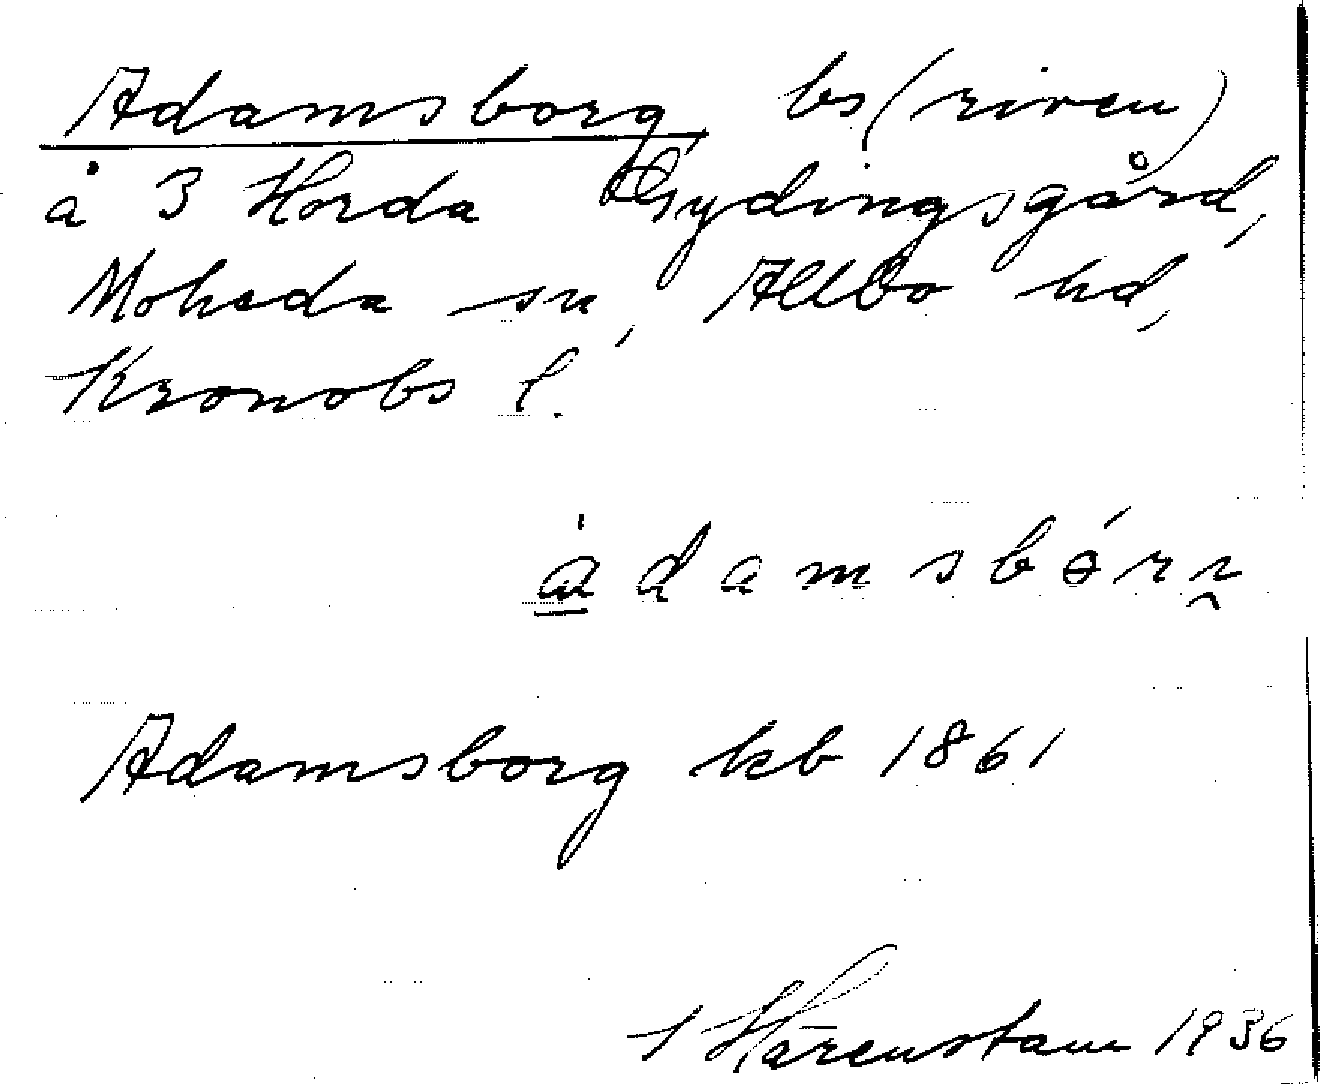 Adamsborg bs (riven)
å 3 Horda Gydingsgård,
Moheda sn, Allbo hd,
Kronobs l.
Adamsborg kb 1861
S Härenstam 1936